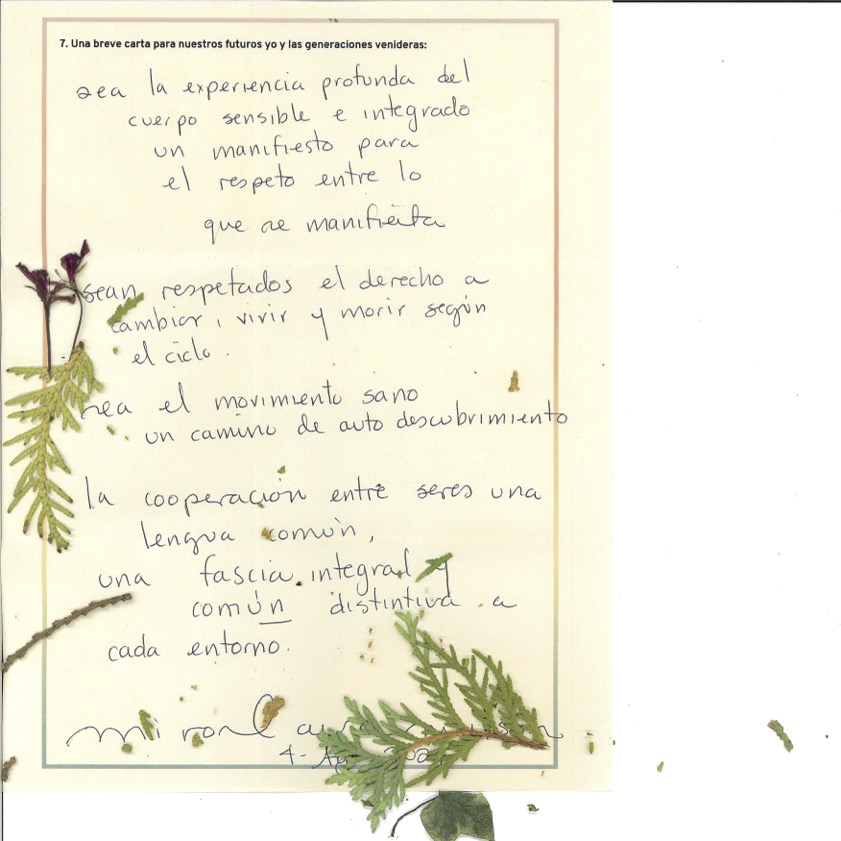 7. Una breve carta para nuestros futuros yo y las generaciones venideras:
sea la experiencia profunda del
cuerpo sensible e integrado
un manifiesto para
el respeto entre lo
que se manifiesta
sean respetados el derecho a
cambiar, vivir y morir según
el ciclo.
sea el movimiento sano
un camino de auto descubrimiento
la cooperación entre seres una
lengua común,
una fascia integral y
común distintiva a
cada entorno.
4 -